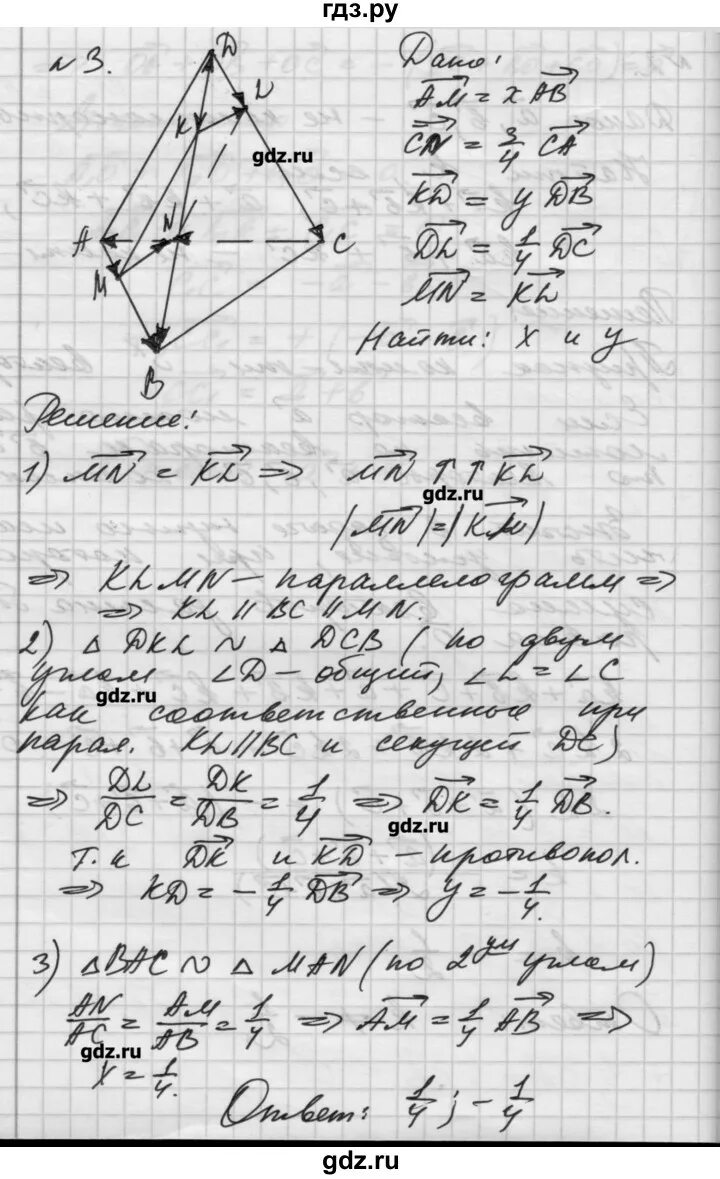 гдз.ру
№3.
D
L
K
gdz.ru
A
N
C
M
B
Дано:
AM = x AB
CN = 3/4 CA
KD = y DB
DL = 1/4 DC
MN = KL
Найти: x и y
Решение:
1) MN = KL => MN ↑↑ KL
gdz.ru
|MN| = |KL|
=> KLMN – параллелограмм =>
=> KL || BC || MN.
2) △ DKL ~ △ DCB (по двум
углам ∠D – общий, ∠L = ∠C
gdz.ru
как соответственные при
парал. KL||BC и секущей DC)
=> DL/DC = DK/DB = 1/4 => DK = 1/4 DB.
gdz.ru
т.к DK и KD – противопол.
=> KD = - 1/4 DB => y = - 1/4.
3) △BAC ~ △ MAN (по 2ум углам)
AN/AC = AM/AB = 1/4 => AM = 1/4 AB =>
gdz.ru
x = 1/4.
Ответ: 1/4; - 1/4
gdz.ru